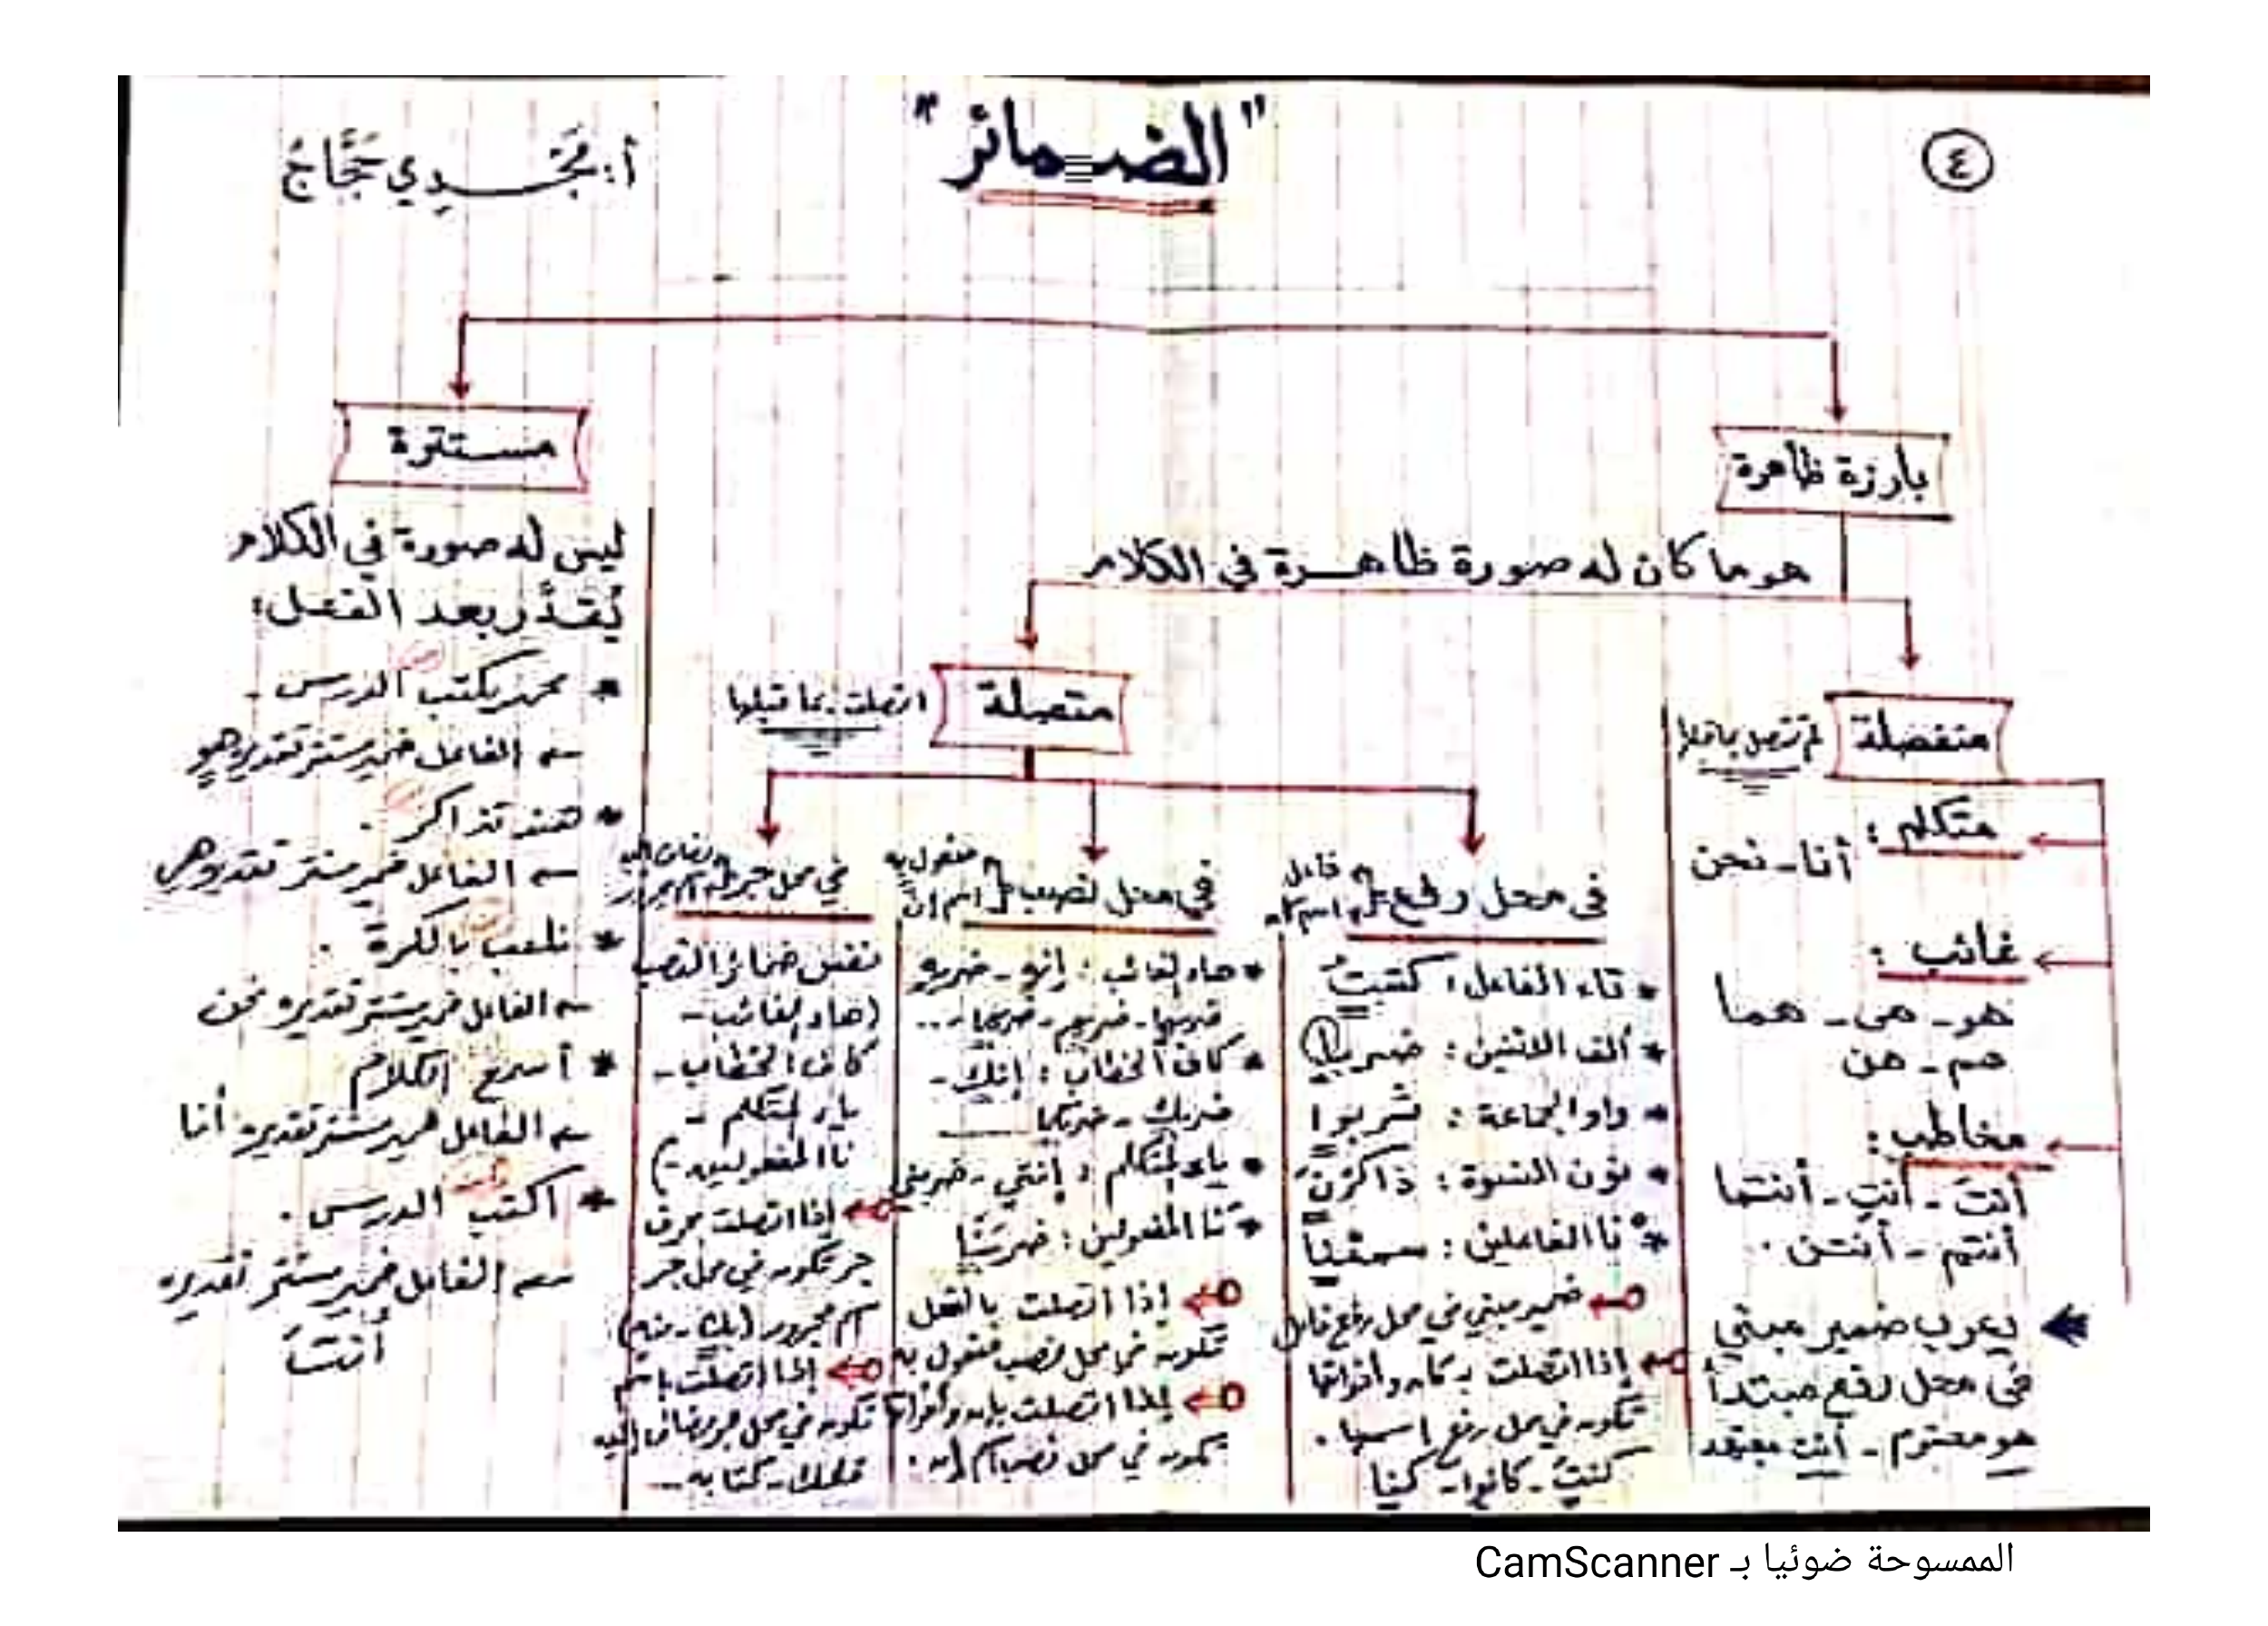 ٤
"الضمائر"
أ: مَجْدِي حَجَّاج
بارزة ظاهرة
هو ما كان له صورة ظاهرة في الكلام
منفصلة
لم تتصل بما قبلها
متكلم :
أنا - نحن
غائب :
هو - هى - هما
هم - هن
مخاطب :
أنتَ - أنتِ - أنتما
أنتم - أنتن .
يعرب ضمير مبني
فى محل رفع مبتدأ
هو محترم - أنت
متصلة
اتصلت بما قبلها
فى محل رفع
فاعل
اسم كان
* تاء الفاعل : كتبتُ
* ألف الاثنين : ضربا
* واو الجماعة : شربوا
* نون النسوة : ذاكرْنَ
* نا الفاعلين : سمعْنا
ضمير مبني في محل رفع فاعل
إذا اتصلت بـ كان وأخواتها
تكون في محل رفع اسمها .
كنتَ - كانوا - كنا
في محل نصب
مفعول به
اسم إنَّ
* هاء الغائب : إنه - ضربه
ضربها - ضربهم - ضربهما - ..
* كاف الخطاب : إنك -
ضربك - ضربكما
* ياء المتكلم : إنني - ضربني
* نا المفعولين : ضربَنا
إذا اتصلت بالفعل
تكون في محل نصب مفعول به
إذا اتصلت بإن وأخواتها
تكون في محل نصب اسم إن .
في محل جر
مضاف إليه
اسم مجرور
نفس ضمائر النصب
(هاء الغائب -
كاف الخطاب -
ياء المتكلم -
نا المفعولين -)
إذا اتصلت بحرف
جر تكون في محل جر
اسم مجرور (بك - منه)
إذا اتصلت باسم
تكون في محل جر مضاف إليه
قلمك - كتابه ...
مستترة
ليس له صورة في الكلام
يُقدَّر بعد الفعل :
* محمد يكتب الدرس .
الفاعل ضمير مستتر تقديره هو
* هند تذاكر .
الفاعل ضمير مستتر تقديره هي
* نلعب بالكرة .
الفاعل ضمير مستتر تقديره نحن
* أسمع الكلام
الفاعل ضمير مستتر تقديره أنا
* اكتب الدرس .
الفاعل ضمير مستتر تقديره
أنتَ
الممسوحة ضوئيا بـ CamScanner